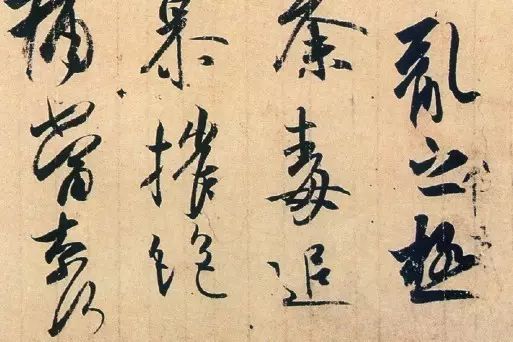 亂之極
荼毒追
慕摧絶
痛當奈何